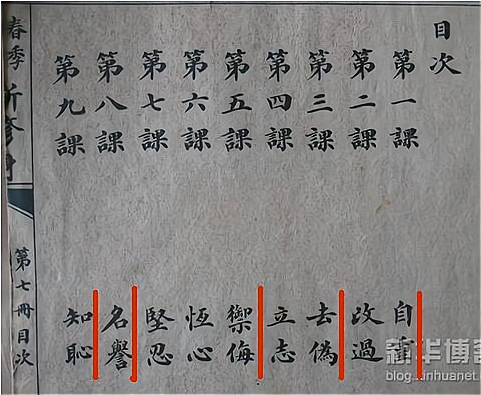 目次
第一課 自重
第二課 改過
第三課 去偽
第四課 立志
第五課 禦侮
第六課 恆心
第七課 堅忍
第八課 名譽
第九課 知恥
春季 新修身
第七冊目次
新华博客
blog.xinhuanet.com